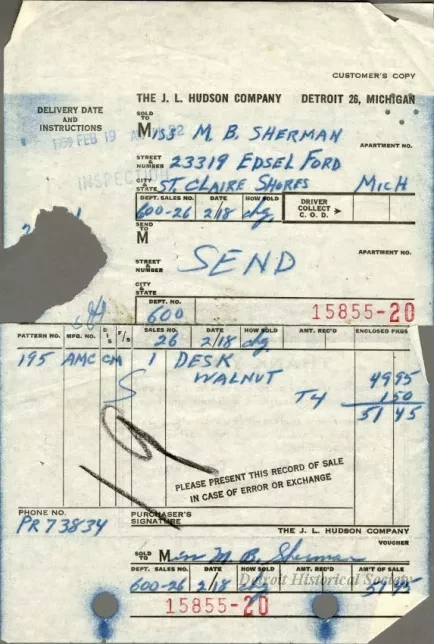 CUSTOMER'S COPY
THE J. L. HUDSON COMPANY DETROIT 26, MICHIGAN
DELIVERY DATE
AND
INSTRUCTIONS
1959 FEB 19
INSPECTION
SOLD
TO
Miss M B. SHERMAN
APARTMENT NO.
STREET
&
NUMBER 23319 EDSEL FORD
CITY
&
STATE ST. CLAIRE SHORES MICH
DEPT. SALES NO. DATE HOW SOLD DRIVER COLLECT C. O. D.
600-26 2/18 chg.
SEND
TO
M
APARTMENT NO.
STREET
&
NUMBER SEND
CITY
&
STATE
DEPT. NO.
600 15855-20
PATTERN NO. MFG. NO. D I S F/S SALES NO. DATE HOW SOLD AMT. REC'D ENCLOSED PKGS
26 2/18 chg
195 AMC CM 1 DESK
WALNUT 49 95
T4 1 50
51 45
19
PLEASE PRESENT THIS RECORD OF SALE
IN CASE OF ERROR OR EXCHANGE
PHONE NO. PURCHASER'S
SIGNATURE
PR 73834
THE J. L. HUDSON COMPANY
VOUCHER
SOLD
TO Miss M. B. Sherman
DEPT. SALES NO. DATE HOW SOLD AMT. REC'D AM'T OF SALE
600-26 2/18 chg 51 45
Detroit Historical Society
15855-20